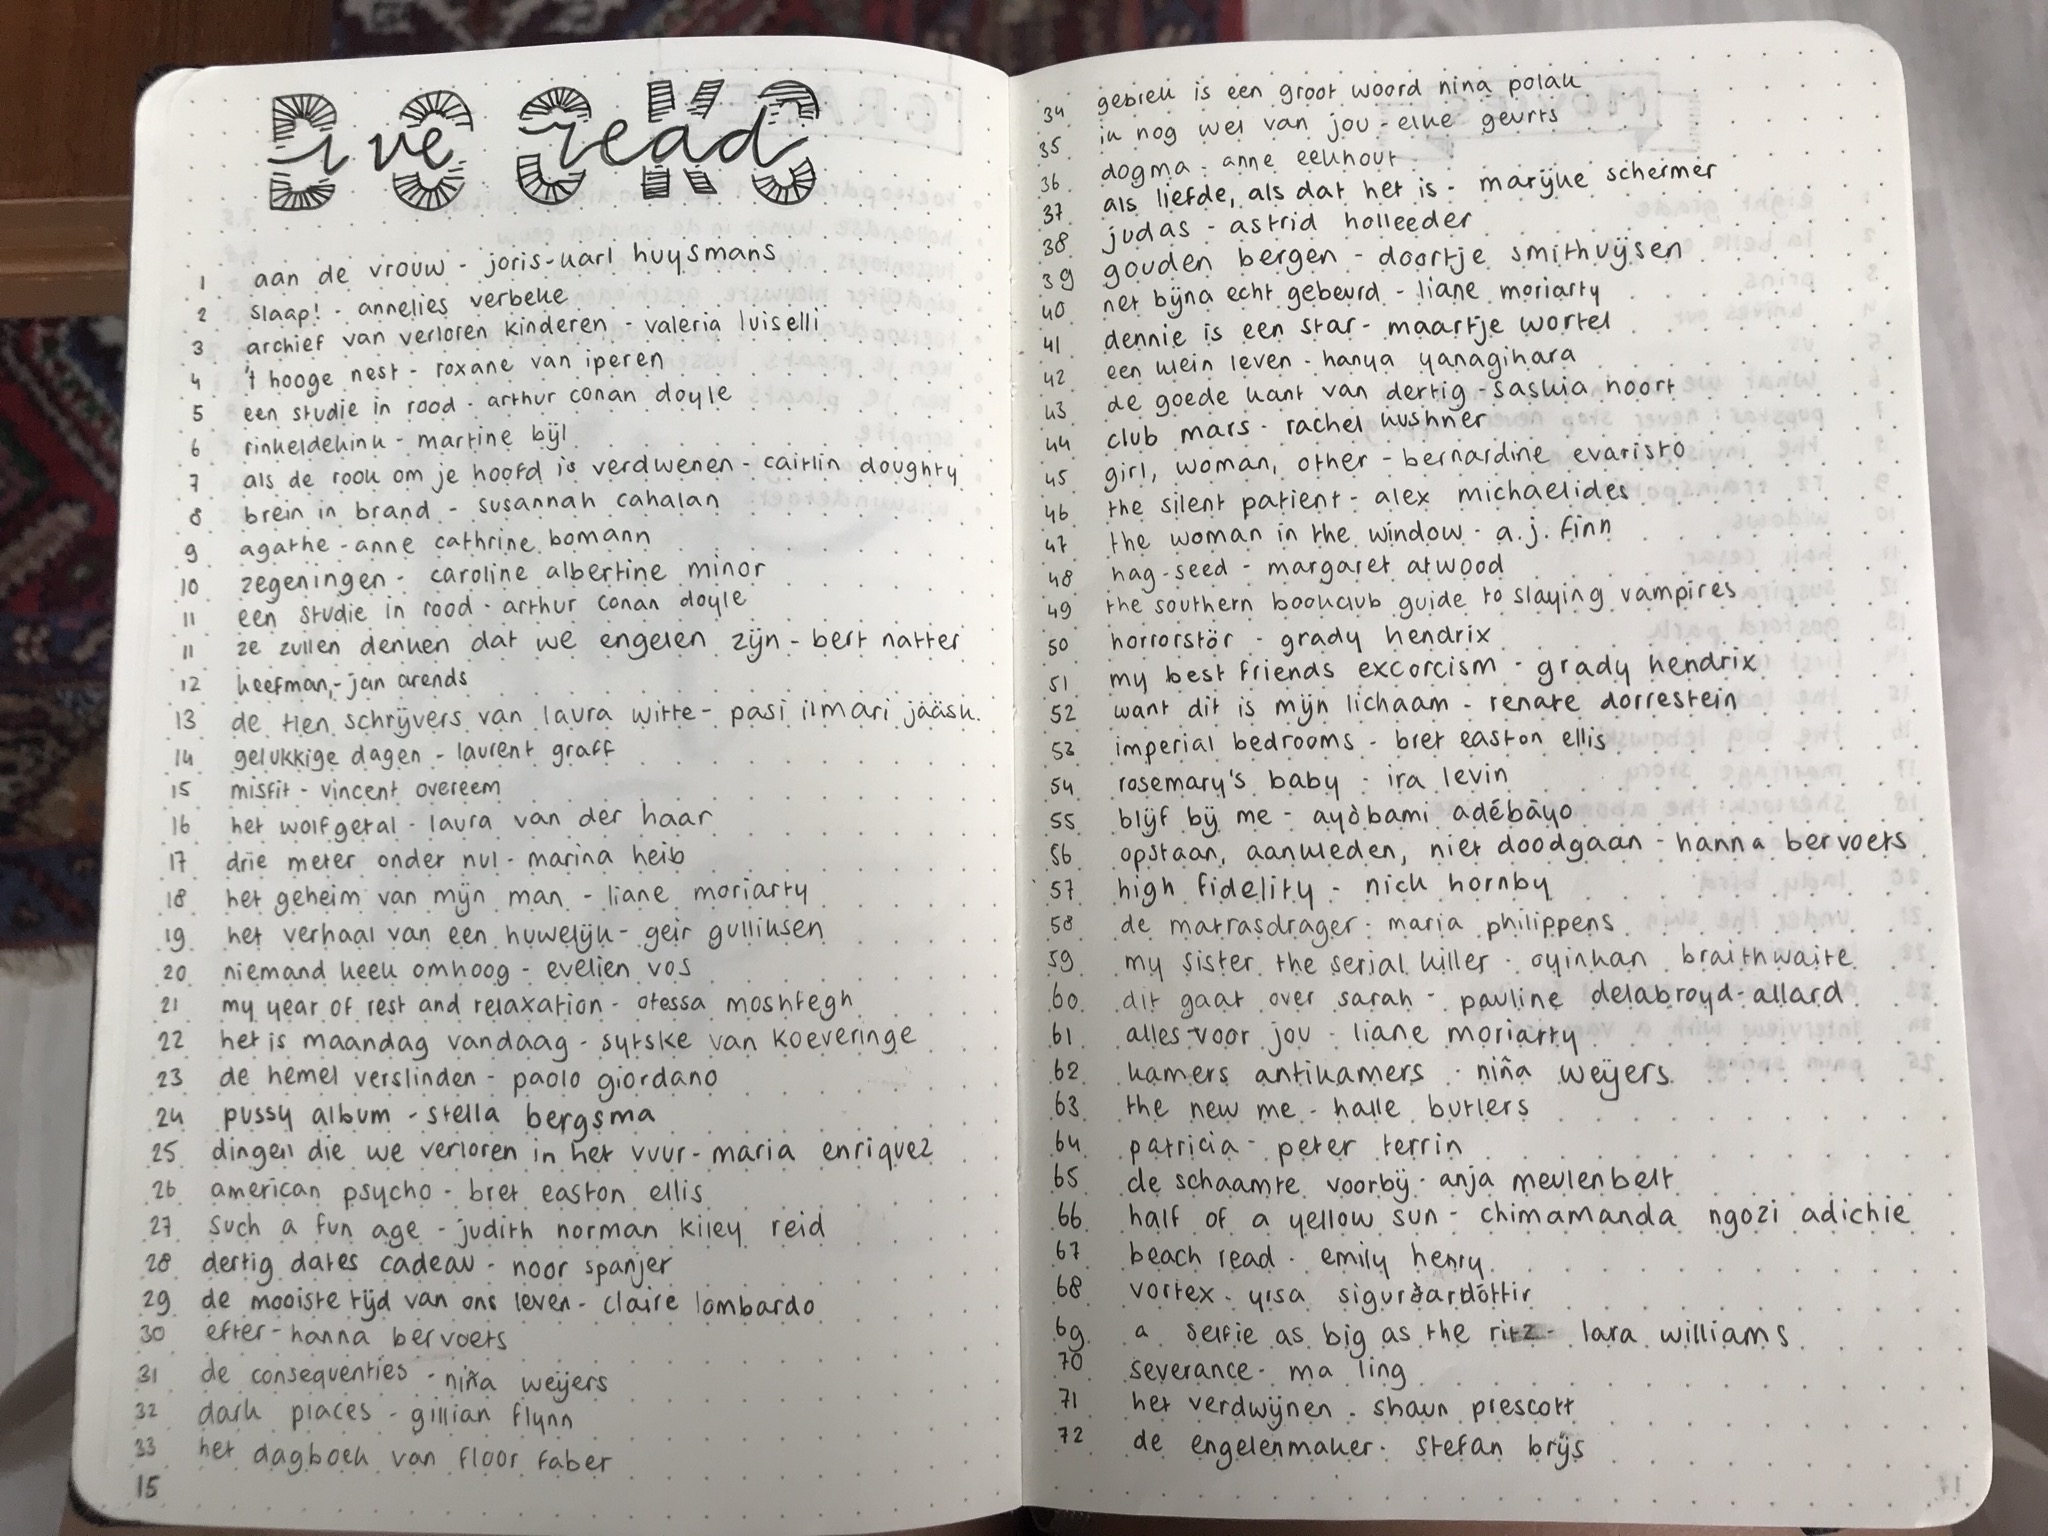 BOOKS
i've read
1 aan de vrouw - joris-karl huysmans
2 slaap! - annelies verbeke
3 archief van verloren kinderen - valeria luiselli
4 't hooge nest - roxane van iperen
5 een studie in rood - arthur conan doyle
6 rinkeldekink - martine bijl
7 als de rook om je hoofd is verdwenen - caitlin doughty
8 brein in brand - susannah cahalan
9 agathe - anne cathrine bomann
10 zegeningen - caroline albertine minor
11 een studie in rood - arthur conan doyle
11 ze zullen denken dat we engelen zijn - bert natter
12 keefman - jan arends
13 de tien schrijvers van laura witte - pasi ilmari jääsk.
14 gelukkige dagen - laurent graff
15 misfit - vincent overeem
16 het wolfgetal - laura van der haar
17 drie meter onder nul - marina heib
18 het geheim van mijn man - liane moriarty
19 het verhaal van een huwelijk - geir gulliksen
20 niemand keek omhoog - evelien vos
21 my year of rest and relaxation - otessa moshfegh
22 het is maandag vandaag - sytske van koeveringe
23 de hemel verslinden - paolo giordano
24 pussy album - stella bergsma
25 dingen die we verloren in het vuur - maria enriquez
26 american psycho - bret easton ellis
27 such a fun age - judith norman kiley reid
28 dertig dates cadeau - noor spanjer
29 de mooiste tijd van ons leven - claire lombardo
30 efter - hanna bervoets
31 de consequenties - niña weijers
32 dark places - gillian flynn
33 het dagboek van floor faber
15
34 gebrek is een groot woord nina polak
35 ik nog wel van jou - elke geurts
36 dogma - anne eekhout
37 als liefde, als dat het is - marijke schermer
38 judas - astrid holleeder
39 gouden bergen - doortje smithuijsen
40 net bijna echt gebeurd - liane moriarty
41 dennie is een star - maartje wortel
42 een klein leven - hanya yanagihara
43 de goede kant van dertig - saskia noort
44 club mars - rachel kushner
45 girl, woman, other - bernardine evaristo
46 the silent patient - alex michaelides
47 the woman in the window - a.j. finn
48 hag-seed - margaret atwood
49 the southern bookclub guide to slaying vampires
50 horrorstör - grady hendrix
51 my best friends excorcism - grady hendrix
52 want dit is mijn lichaam - renate dorrestein
53 imperial bedrooms - bret easton ellis
54 rosemary's baby - ira levin
55 blijf bij me - ayòbami adébáyo
56 opstaan, aankleden, niet doodgaan - hanna bervoets
57 high fidelity - nick hornby
58 de matrasdrager - maria philippens
59 my sister the serial killer - oyinkan braithwaite
60 dit gaat over sarah - pauline delabroyd-allard
61 alles voor jou - liane moriarty
62 kamers antikamers - niña weijers
63 the new me - halle butlers
64 patricia - peter terrin
65 de schaamte voorbij - anja meulenbelt
66 half of a yellow sun - chimamanda ngozi adichie
67 beach read - emily henry
68 vortex - yrsa sigurðardóttir
69 a selfie as big as the ritz - lara williams
70 severance - ma ling
71 het verdwijnen - shaun prescott
72 de engelenmaker - stefan brijs